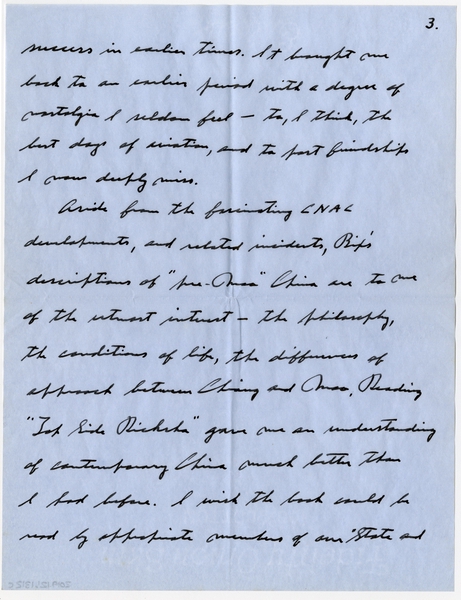 3.
success in earlier times. It brought me
back to an earlier period with a degree of
nostalgia I seldom feel — to, I think, the
best days of aviation, and to past friendships
I now deeply miss.
Aside from the fascinating CNAC
developments, and related incidents, Bix's
descriptions of "pre-Mao" China are to me
of the utmost interest — the philosophy,
the conditions of life, the differences of
approach between Chiang and Mao. Reading
"Top Side Ricksha" gave me an understanding
of contemporary China much better than
I had before. I wish the book could be
read by appropriate members of our "State and